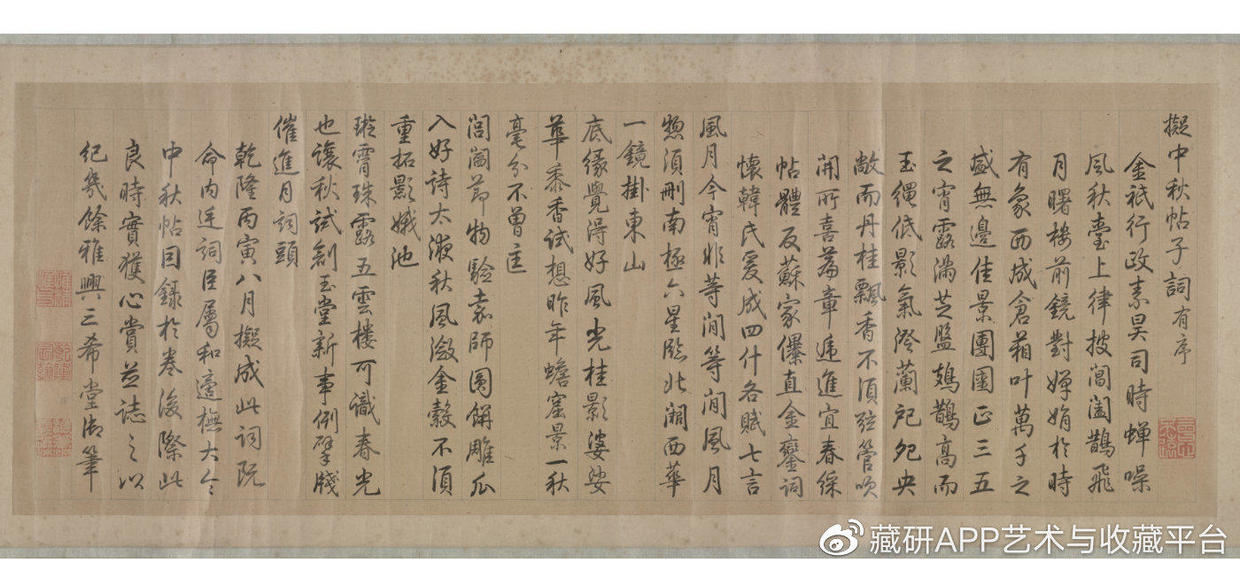 擬中秋帖子詞有序
金祇行政素昊司時蟬噪
風秋臺上律披閶闔鵲飛
月曙樓前鏡對嬋娟於時
有象西成倉葙叶萬千之
盛無邊佳景團圞正三五
之宵露滿芝盤鳷鵲高而
玉繩低影氣澄蘭戺央
敞而丹桂飄香不須弦管喚
開所喜篇章遞進宜春綵
帖體反蘇家儤直金鑾詞
懷韓氏爰成四什各賦七言
風月今宵非等閒等閒風月
惣須刪南極六星臨北闕西華
一鏡掛東山
底緣覺得好風光桂影婆娑
華黍香試想昨年蟾窟景一秋
毫分不曾匡
閭閻節物驗嘉師圓餅雕瓜
入好詩太液秋風潋金縠不須
重拓影娥池
璇霄珠露五雲樓可識春光
也讓秋試創玉堂新事例擘牋
催進月詞頭
乾隆丙寅八月擬成此詞既
命內廷詞臣屬和適橅大令
中秋帖因錄於卷後際此
良時實獲心賞並誌之以
紀幾餘雅興三希堂御筆
藏研APP艺术与收藏平台